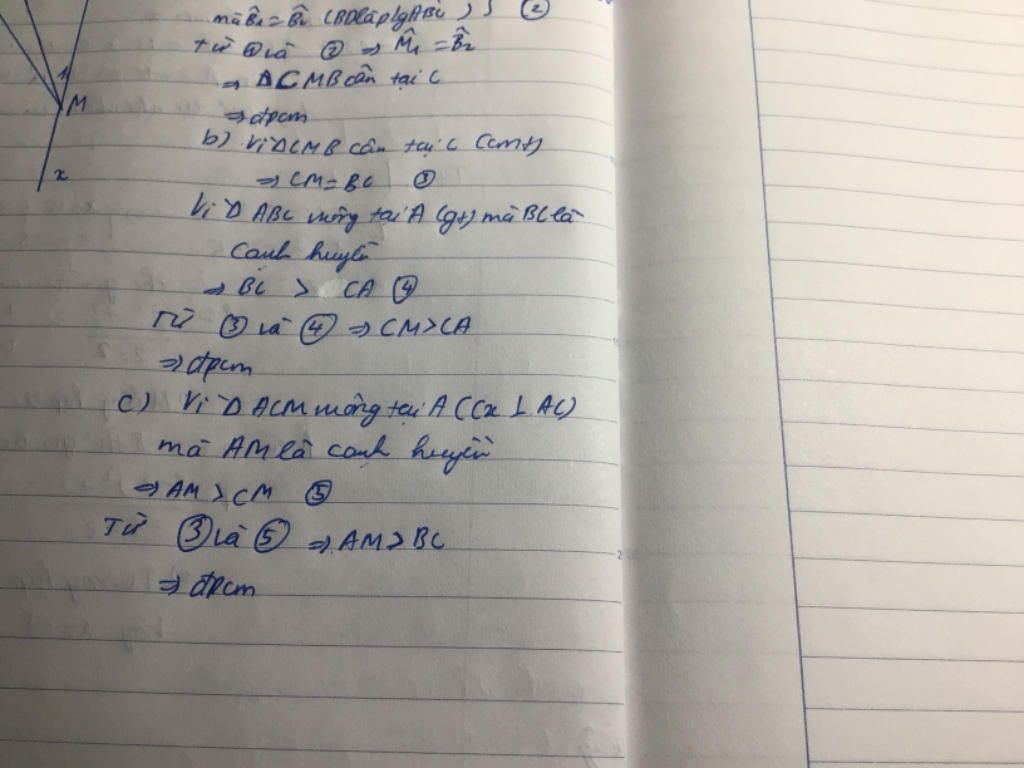 mà B̂₁ = B̂₂ (BD là p/g ABC) } ②
Từ ① và ② ⇒ M̂₁ = B̂₂
⇒ ΔCMB cân tại C
⇒ đpcm
1
M
x
b) Vì ΔCMB cân tại C (cmt)
⇒ CM = BC ③
Vì Δ ABC vuông tại A (gt) mà BC là
cạnh huyền
⇒ BC > CA ④
Từ ③ và ④ ⇒ CM > CA
⇒ đpcm
c) Vì Δ ACM vuông tại A (Cx ⊥ AC)
mà AM là cạnh huyền
⇒ AM > CM ⑤
Từ ③ và ⑤ ⇒ AM > BC
⇒ đpcm